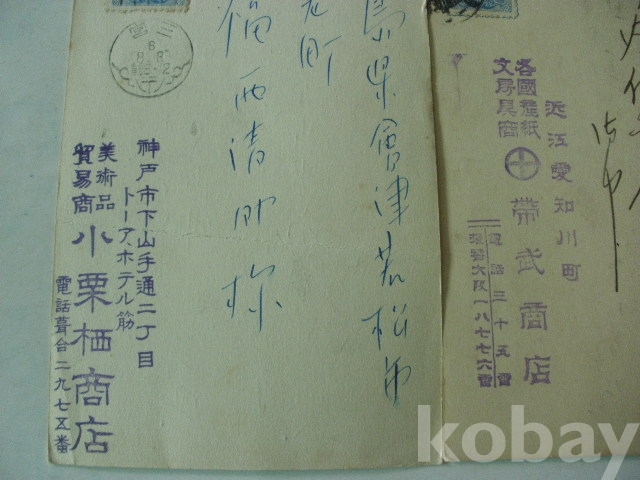 各國産紙
文房具商
近江愛知川町
帶武商店
電話三十五番
振替大阪一八七七六番
島県會津若松市
町
福西清助様
三宮
神戸市下山手通二丁目
トーア、ホテル筋
美術品
貿易商
小栗栖商店
電話葺合二九七五番
kobay